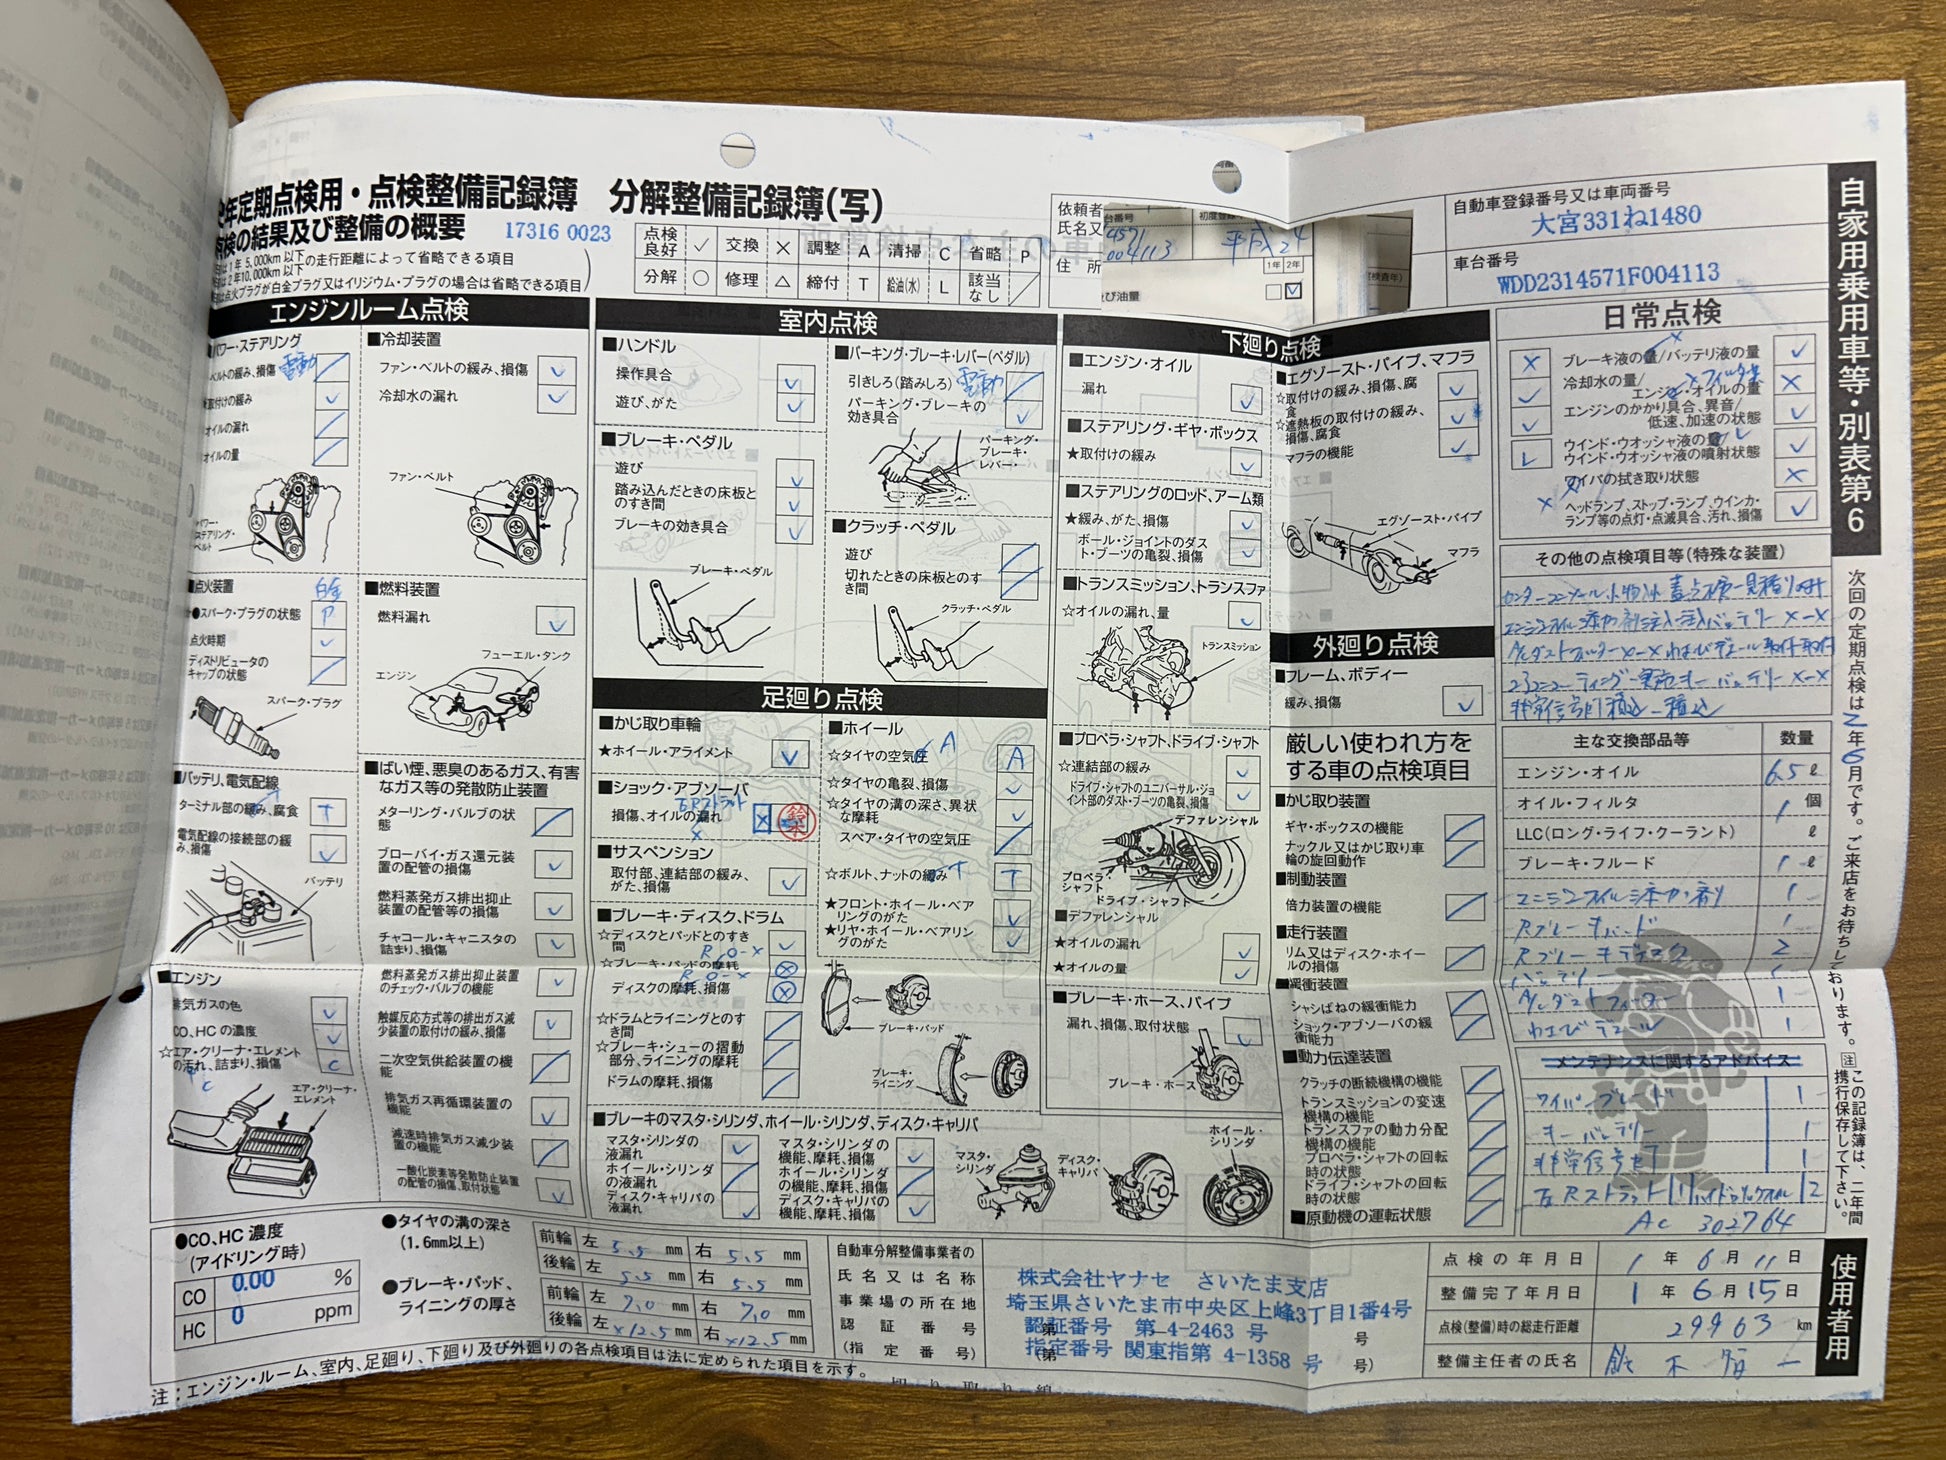 2年定期点検用・点検整備記録簿 分解整備記録簿(写)
点検の結果及び整備の概要
17316 0023
1年5,000km以下
2年10,000km以下
の走行距離によって省略できる項目
は点火プラグが白金プラグ又はイリジウム・プラグの場合は省略できる項目
点検良好 ✓ 交換 × 調整 A 清掃 C 省略 P
分解 ○ 修理 △ 締付 T 給油(水) L 該当なし ／
依頼者
氏名又
住所
台番号
4571
004113
初度登録
平成24
1年 2年
及び油量
自動車登録番号又は車両番号
大宮331ね1480
車台番号
WDD2314571F004113
自家用乗用車等・別表第6
エンジンルーム点検
■パワー・ステアリング
ベルトの緩み、損傷 電動
★取付けの緩み ✓
オイルの漏れ
オイルの量
パワー・ステアリング・ベルト
■点火装置
白金
●スパーク・プラグの状態 P
点火時期 ✓
ディストリビュータのキャップの状態
スパーク・プラグ
■バッテリ、電気配線
ターミナル部の緩み、腐食 T
電気配線の接続部の緩み、損傷 ✓
バッテリ
■エンジン
排気ガスの色 ✓
CO、HCの濃度 ✓
☆エア・クリーナ・エレメントの汚れ、詰まり、損傷 C
エア・クリーナ・エレメント
■冷却装置
ファン・ベルトの緩み、損傷 ✓
冷却水の漏れ ✓
ファン・ベルト
■燃料装置
燃料漏れ ✓
フューエル・タンク
エンジン
■ばい煙、悪臭のあるガス、有害なガス等の発散防止装置
メターリング・バルブの状態
ブローバイ・ガス還元装置の配管の損傷 ✓
燃料蒸発ガス排出抑止装置の配管等の損傷 ✓
チャコール・キャニスタの詰まり、損傷 ✓
燃料蒸発ガス排出抑止装置のチェック・バルブの機能 ✓
触媒反応方式等の排出ガス減少装置の取付けの緩み、損傷 ✓
二次空気供給装置の機能
排気ガス再循環装置の機能 ✓
減速時排気ガス減少装置の機能
一酸化炭素等発散防止装置の配管の損傷、取付状態 ✓
室内点検
■ハンドル
操作具合 ✓
遊び、がた ✓
■ブレーキ・ペダル
遊び ✓
踏み込んだときの床板とのすき間 ✓
ブレーキの効き具合 ✓
ブレーキ・ペダル
■パーキング・ブレーキ・レバー(ペダル)
引きしろ(踏みしろ) 電動
パーキング・ブレーキの効き具合 ✓
パーキング・ブレーキ・レバー
■クラッチ・ペダル
遊び
切れたときの床板とのすき間
クラッチ・ペダル
足廻り点検
■かじ取り車輪
★ホイール・アライメント ✓
■ショック・アブソーバ
右Rストラット
損傷、オイルの漏れ ×
鈴木
■サスペンション
取付部、連結部の緩み、がた、損傷 ✓
■ブレーキ・ディスク、ドラム
☆ディスクとパッドとのすき間 ✓
R O-×
☆ブレーキ・パッドの摩耗 ⊗
R O-×
ディスクの摩耗、損傷 ⊗
☆ドラムとライニングとのすき間
☆ブレーキ・シューの摺動部分、ライニングの摩耗
ドラムの摩耗、損傷
■ホイール
☆タイヤの空気圧 A
☆タイヤの亀裂、損傷 ✓
☆タイヤの溝の深さ、異状な摩耗 ✓
スペア・タイヤの空気圧
☆ボルト、ナットの緩み T
★フロント・ホイール・ベアリングのがた ✓
★リヤ・ホイール・ベアリングのがた ✓
ブレーキ・パッド
ブレーキ・ライニング
■ブレーキのマスタ・シリンダ、ホイール・シリンダ、ディスク・キャリパ
マスタ・シリンダの液漏れ ✓
ホイール・シリンダの液漏れ
ディスク・キャリパの液漏れ ✓
マスタ・シリンダの機能、摩耗、損傷 ✓
ホイール・シリンダの機能、摩耗、損傷
ディスク・キャリパの機能、摩耗、損傷 ✓
マスタ・シリンダ
ディスク・キャリパ
ホイール・シリンダ
下廻り点検
■エンジン・オイル
漏れ ✓
■ステアリング・ギヤ・ボックス
★取付けの緩み ✓
■ステアリングのロッド、アーム類
★緩み、がた、損傷 ✓
ボール・ジョイントのダスト・ブーツの亀裂、損傷 ✓
■トランスミッション、トランスファ
☆オイルの漏れ、量 ✓
トランスミッション
■プロペラ・シャフト、ドライブ・シャフト
☆連結部の緩み ✓
ドライブ・シャフトのユニバーサル・ジョイント部のダスト・ブーツの亀裂、損傷 ✓
デファレンシャル
プロペラ・シャフト
ドライブ・シャフト
■デファレンシャル
★オイルの漏れ ✓
★オイルの量 ✓
■ブレーキ・ホース、パイプ
漏れ、損傷、取付状態 ✓
ブレーキ・ホース
■エグゾースト・パイプ、マフラ
☆取付けの緩み、損傷、腐食 ✓
☆遮熱板の取付けの緩み、損傷、腐食 ✓
マフラの機能 ✓
エグゾースト・パイプ
マフラ
外廻り点検
■フレーム、ボディー
緩み、損傷 ✓
厳しい使われ方をする車の点検項目
■かじ取り装置
ギヤ・ボックスの機能
ナックル又はかじ取り車輪の旋回動作
■制動装置
倍力装置の機能
■走行装置
リム又はディスク・ホイールの損傷
■緩衝装置
シャシばねの緩衝能力
ショック・アブソーバの緩衝能力
■動力伝達装置
クラッチの断続機構の機能
トランスミッションの変速機構の機能
トランスファの動力分配機構の機能
プロペラ・シャフトの回転時の状態
ドライブ・シャフトの回転時の状態
■原動機の運転状態
日常点検
× ブレーキ液の量/バッテリ液の量 ✓
✓ 冷却水の量/エンジン・オイルの量 ×
エンジンのかかり具合、異音/低速、加速の状態 ✓
L ウインド・ウオッシャ液の量/ウインド・ウオッシャ液の噴射状態 ✓
ワイパの拭き取り状態 ×
ヘッドランプ、ストップ・ランプ、ウインカ・ランプ等の点灯・点滅具合、汚れ、損傷 ✓
その他の点検項目等(特殊な装置)
センターコンソール小物入れ蓋点検一見積り
エンジンオイル添加剤注入 バッテリー ×-×
ダストフィルター ×-×
コーティング実施 キーバッテリー ×-×
非常信号灯積込
主な交換部品等 数量
エンジン・オイル 6.5 ℓ
オイル・フィルタ 1 個
LLC(ロング・ライフ・クーラント) ℓ
ブレーキ・フルード 1 ℓ
エンジンオイル添加剤 1
Rブレーキパッド 1
Rブレーキディスク 2
バッテリー
ダストフィルター 1
1
メンテナンスに関するアドバイス
ワイパーブレード 1
キーバッテリ 1
非常信号灯 1
右Rストラット 1 ハイドロリックオイル 2
AC 302764
次回の定期点検は2年6月です。ご来店をお待ちしております。
注 この記録簿は、二年間携行保存して下さい。
使用者用
●CO、HC濃度
(アイドリング時)
CO 0.00 %
HC 0 ppm
●タイヤの溝の深さ
(1.6mm以上)
前輪 左 5.5 mm 右 5.5 mm
後輪 左 5.5 mm 右 5.5 mm
●ブレーキ・パッド、ライニングの厚さ
前輪 左 7.0 mm 右 7.0 mm
後輪 左 ×12.5 mm 右 ×12.5 mm
自動車分解整備事業者の
氏名又は名称
事業場の所在地
認証番号
(指定番号)
株式会社ヤナセ さいたま支店
埼玉県さいたま市中央区上峰3丁目1番4号
認証番号 第 4-2463 号
指定番号 関東指第 4-1358 号
点検の年月日 1年6月11日
整備完了年月日 1年6月15日
点検(整備)時の総走行距離 29963 km
整備主任者の氏名
注：エンジン・ルーム、室内、足廻り、下廻り及び外廻りの各点検項目は法に定められた項目を示す。
切り取り線